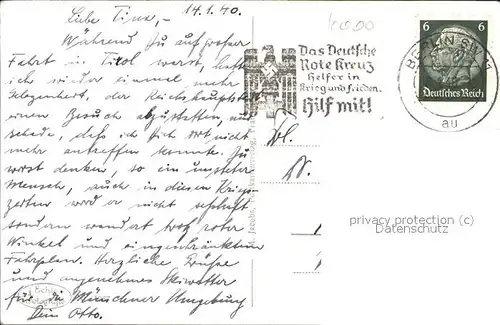 14.1.40.
Liebe Tina,-
Während Du auf froher
Fahrt in Tirol warst, hatte
ich wieder einmal mehr
Gelegenheit, der Reichshauptstadt
einen Besuch abzustatten, nur
schade, daß ich Dich dort nicht
mehr antreffen konnte. Du
wirst denken, so ein unsteter
Mensch, auch in diesen Kriegs-
zeiten wird er nicht seßhaft
sondern wandert trotz roter
Winkel und eingeschränktem
Fahrplan. Herzliche Grüße
und angenehmes Skiwetter
für die Münchner Umgebung
Dein Otto.
Das Deutsche
Rote Kreuz
Helfer in
Krieg und Frieden.
Hilf mit!
6 6
Deutsches Reich
BERLIN SW
au
privacy protection (c)
Datenschutz
Echte
Photographie